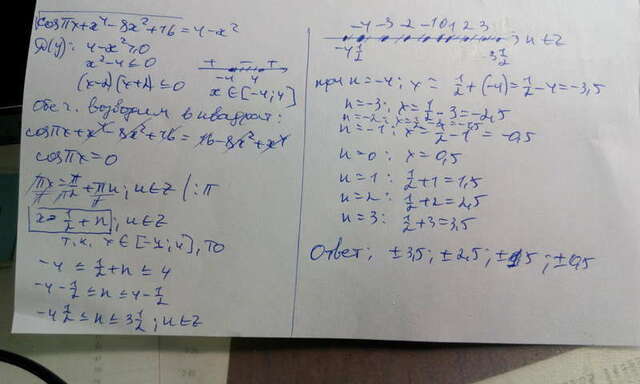 √(cosπx+x⁴-8x²+16)=4-x²
D(y): 4-x²≥0
x²-4≤0
+ - +
-4 4
(x-2)(x+2)≤0 x∈[-4;4]
Обе ч. возводим в квадрат:
cosπx+x⁴-8x²+16=16-8x²+x⁴
cosπx=0
πx=π/2+πn; n∈Z |:π
x=1/2+n; n∈Z
т.к. x∈[-4;4], то
-4≤1/2+n≤4
-4-1/2≤n≤4-1/2
-4 1/2≤n≤3 1/2; n∈Z
-4 -3 -2 -1 0 1 2 3
-4 1/2 3 1/2 ; n∈Z
при n=-4; x=1/2+(-4)=1/2-4=-3,5
n=-3: x=1/2-3=-2,5
n=-1: x=1/2-1=-0,5
n=0: x=0,5
n=1: 1/2+1=1,5
n=2: 1/2+2=2,5
n=3: 1/2+3=3,5
Ответ: ±3,5; ±2,5; ±1,5; ±0,5